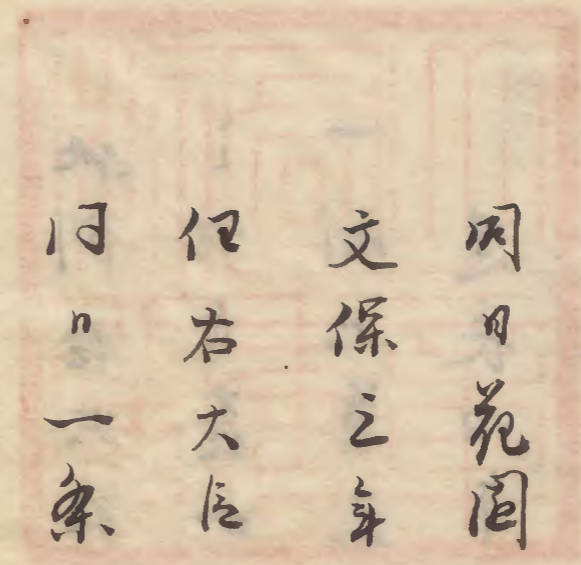 同日花園
文保三年
任右大臣
同日一条